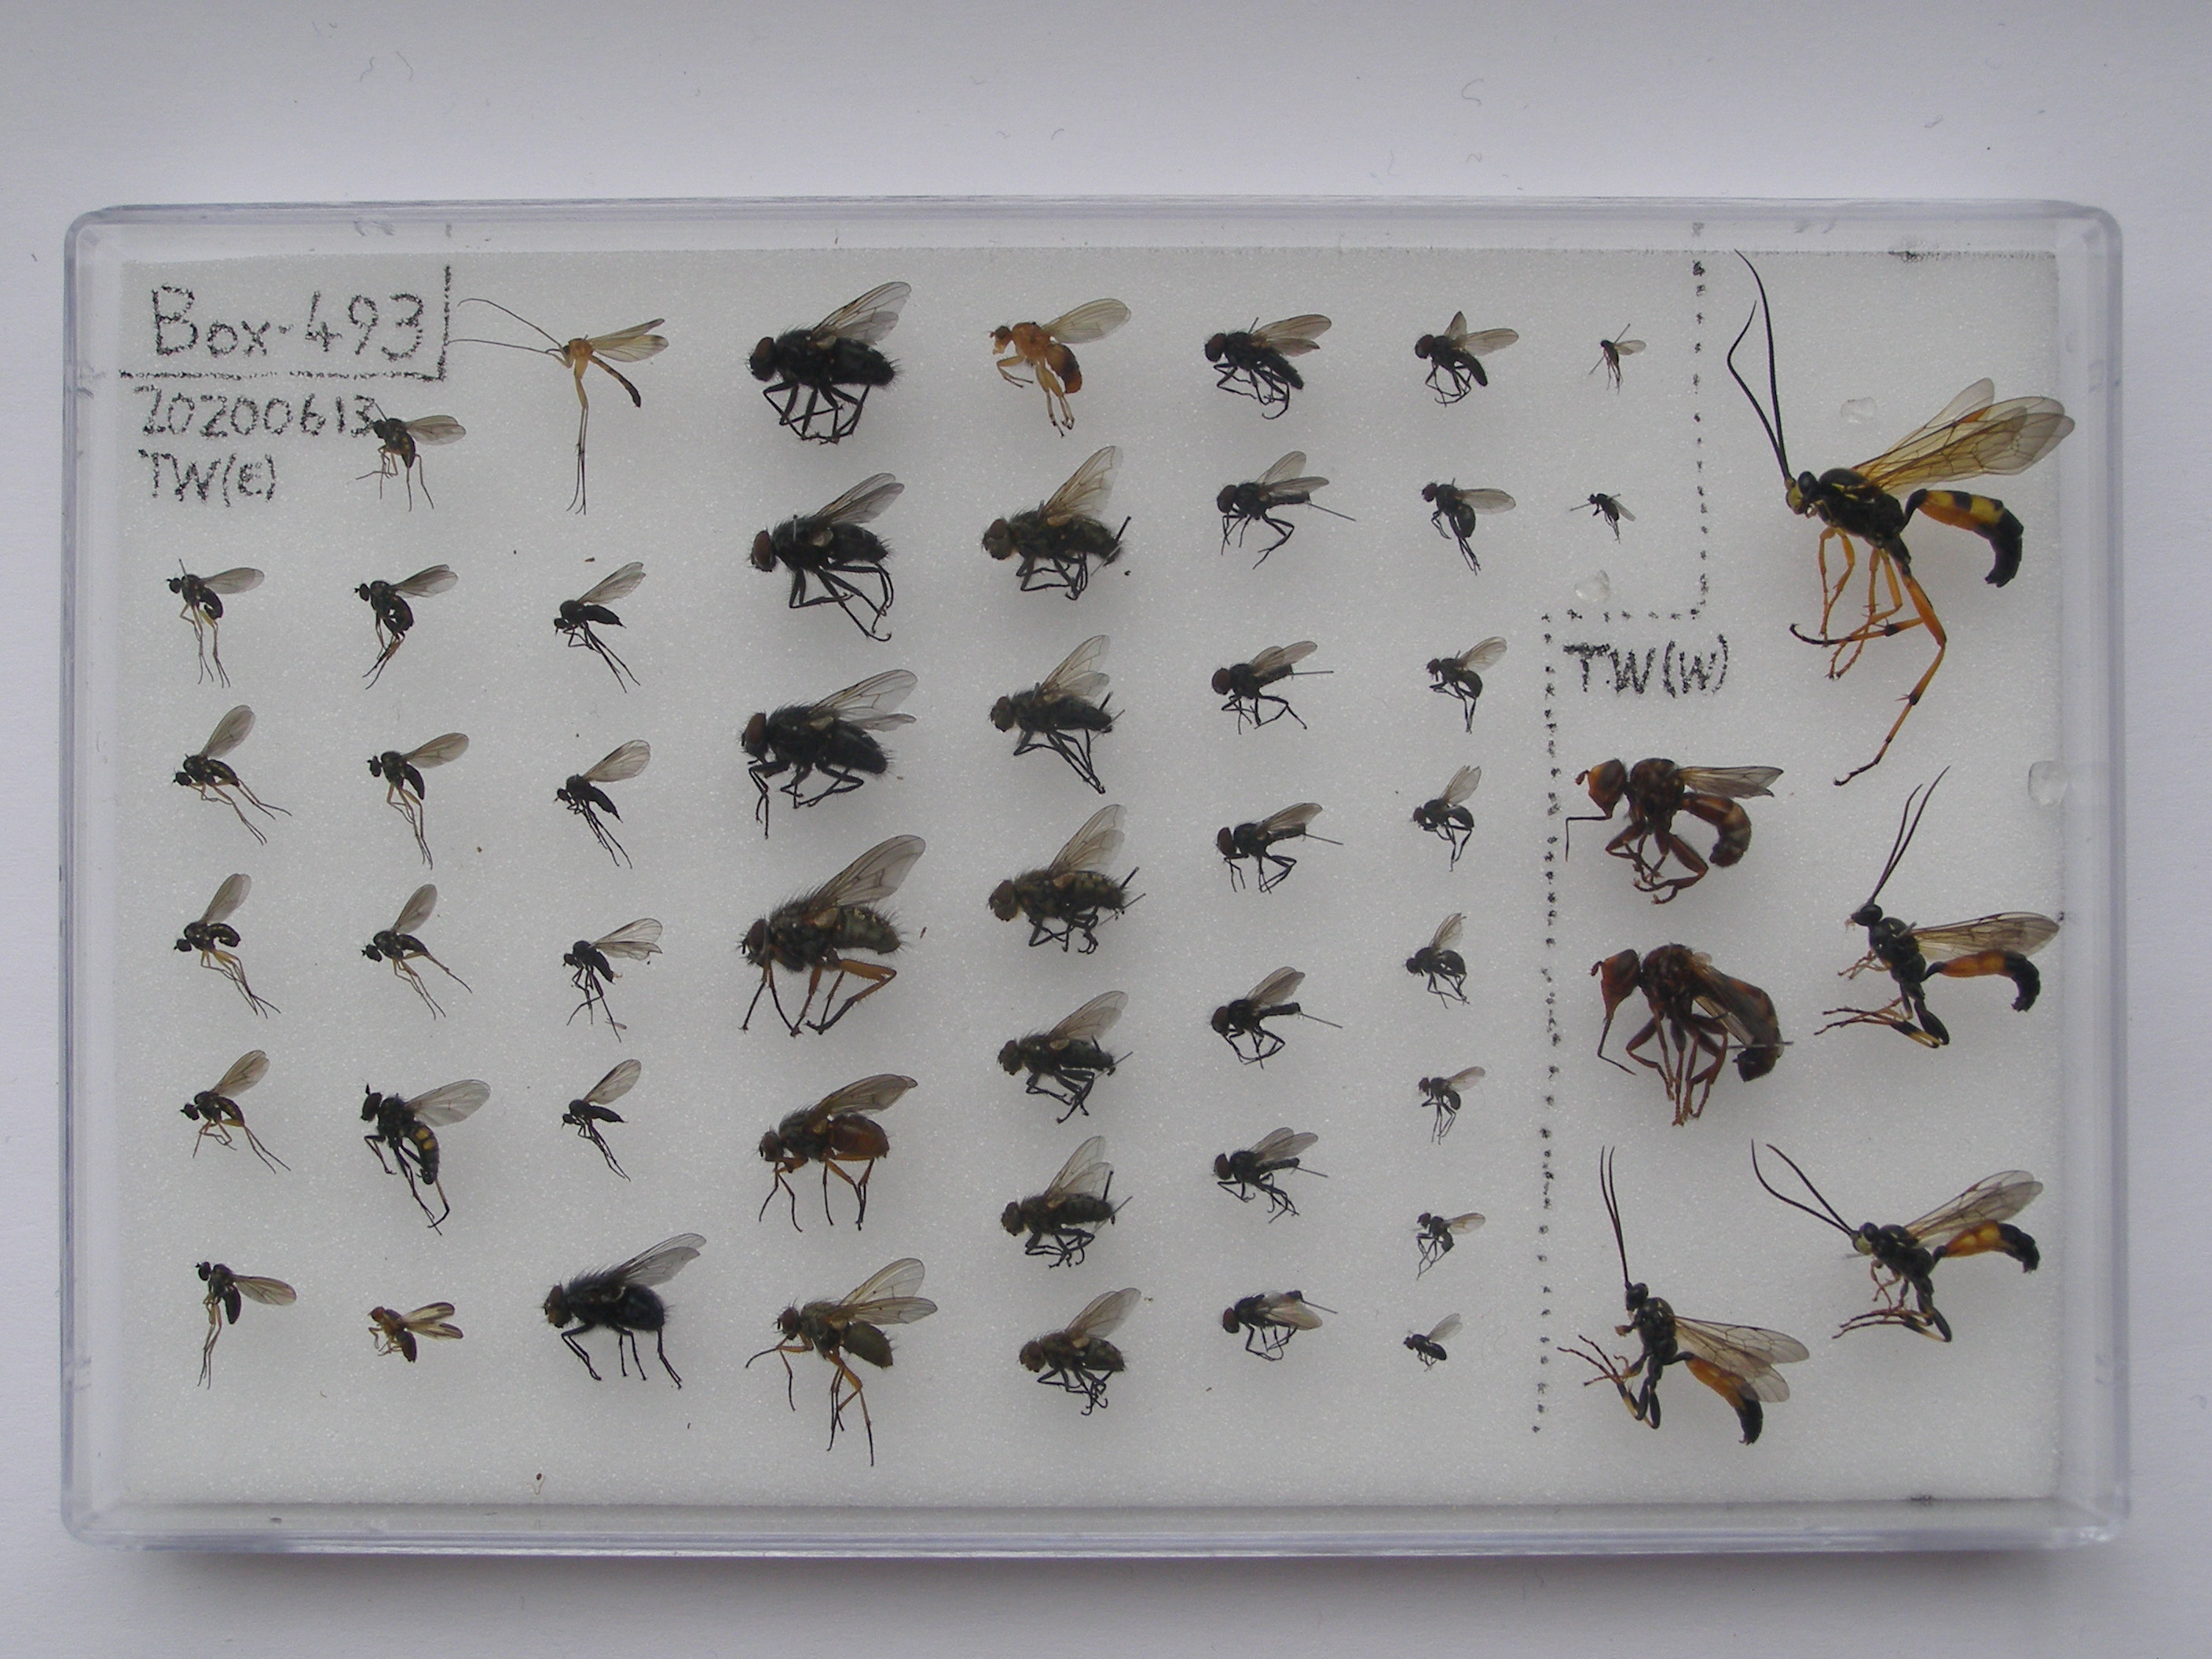 Box-493
20200613
TW(E)
TW(W)